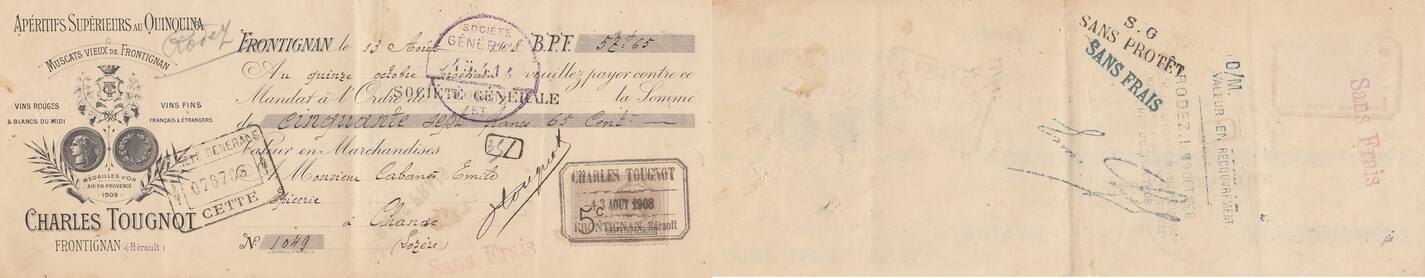 APÉRITIFS SUPÉRIEURS AU QUINQUINA
Rodez
MUSCATS VIEUX DE FRONTIGNAN
VINS ROUGES
& BLANCS DU MIDI
VINS FINS
FRANÇAIS & ÉTRANGERS
MÉDAILLES D'OR
AIX-EN-PROVENCE
1902
CHARLES TOUGNOT
FRONTIGNAN (Hérault)
FRONTIGNAN le 13 Août 1908 B.P.F. 57f.65
Au quinze octobre prochain veuillez payer contre ce
Mandat à l'Ordre de SOCIÉTÉ GÉNÉRALE la Somme
de cinquante sept francs 65 Cent.
Valeur en Marchandises
à Monsieur Cabanet Emile
Epicerie
à Chanac
(Lozère)
N° 1049
SOCIÉTÉ
GÉNÉRALE
GÉNÉRALE
CETTE
CTougnot
CHARLES TOUGNOT
13 AOUT 1908
5c
FRONTIGNAN, Hérault
Sans Frais
S.G
SANS PROTÊT
SANS FRAIS
RODEZ
VALEUR EN RECOUVREMENT
Sans Frais